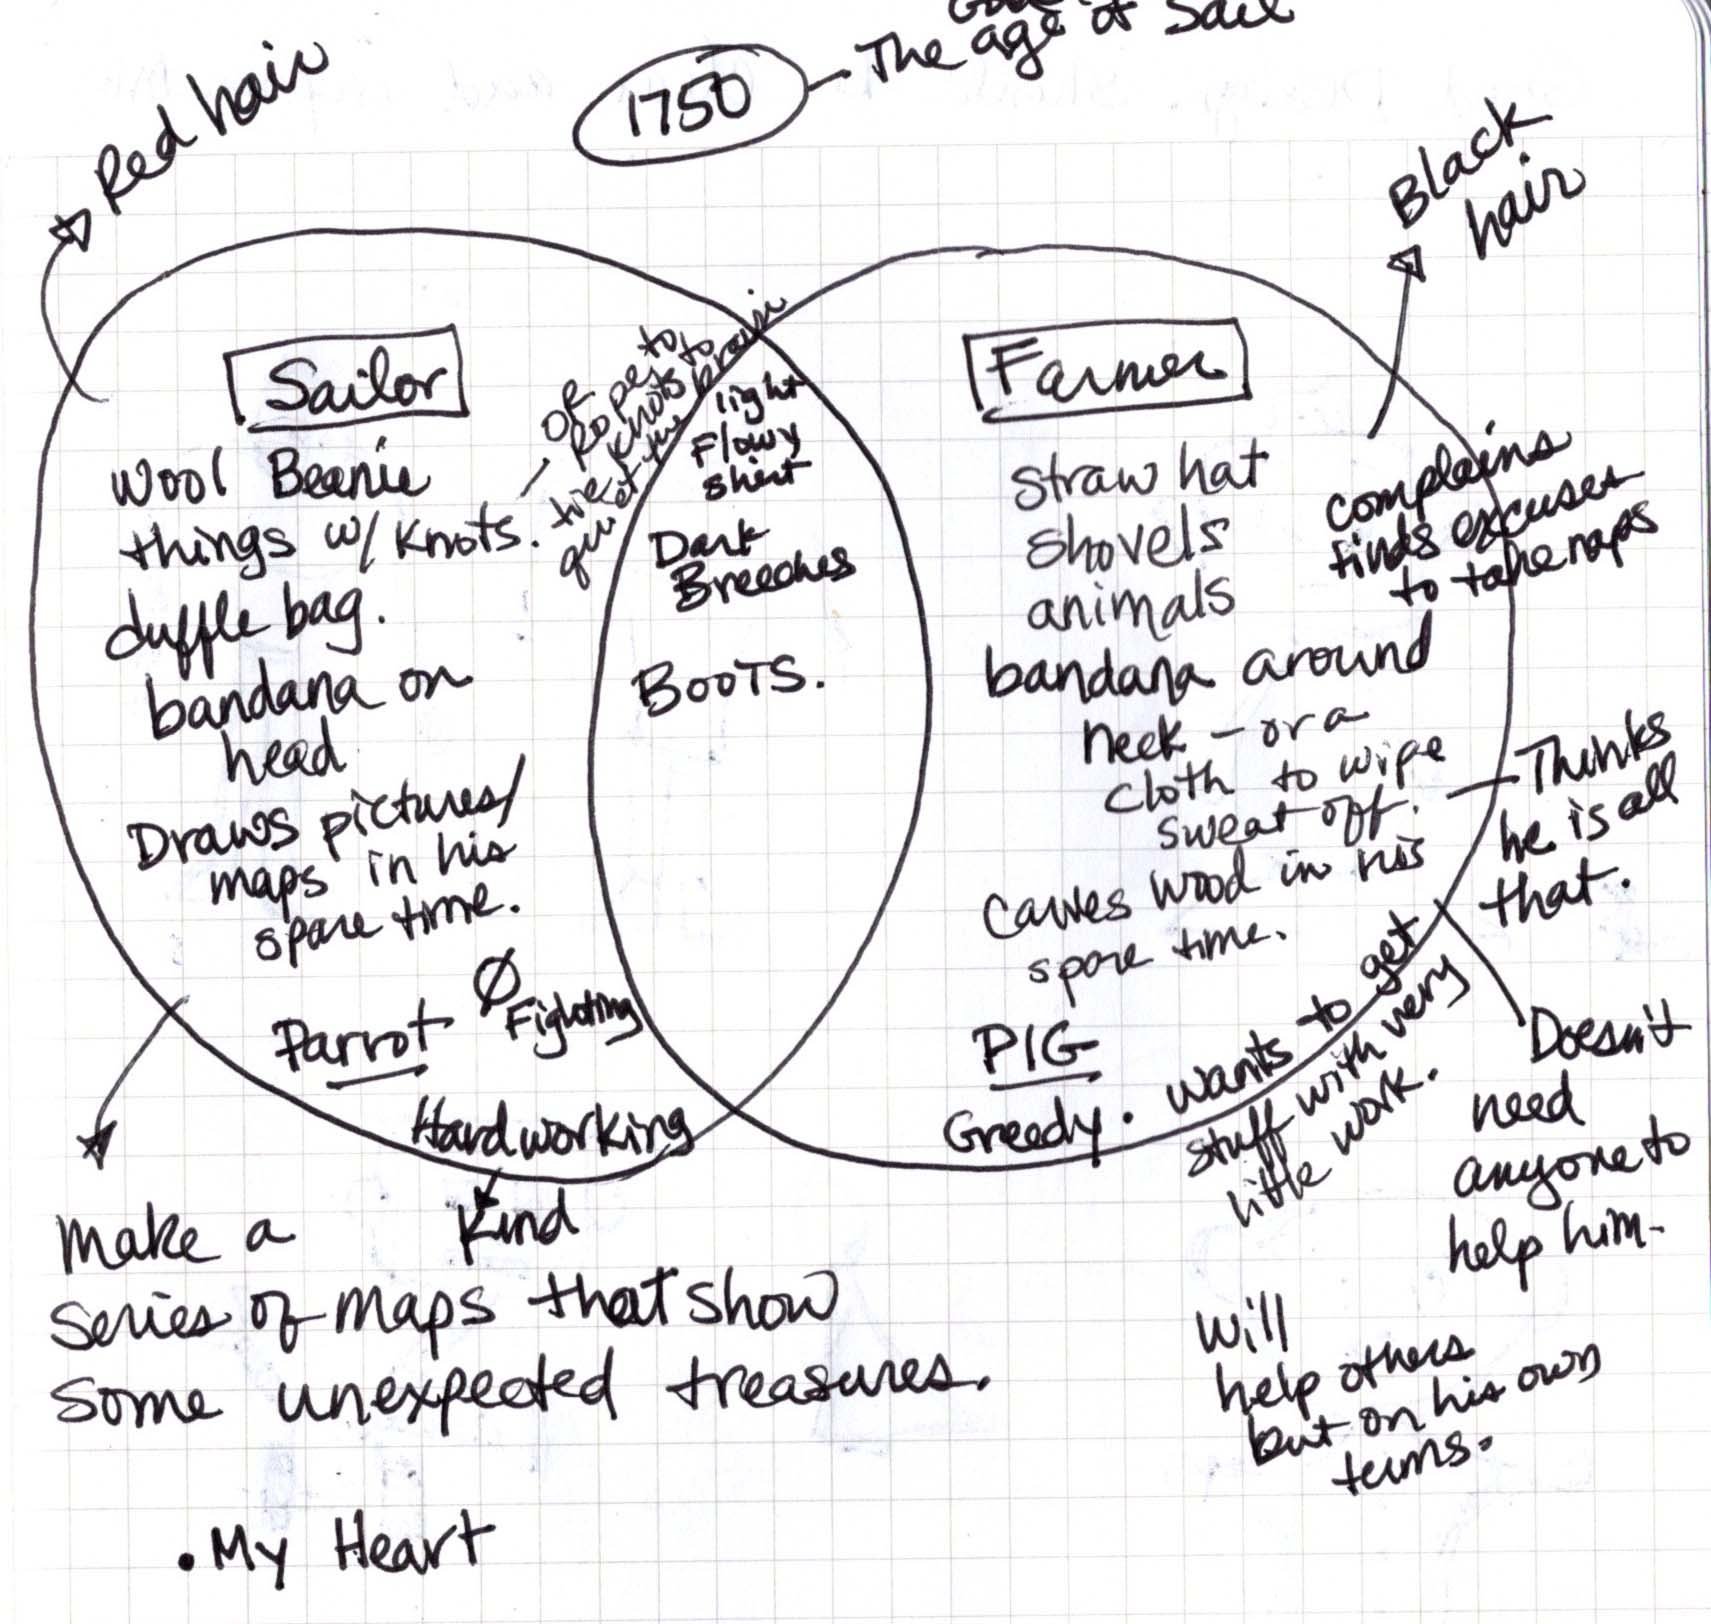 The age of Sail
1750
Red hair
Black
hair
Sailor
Wool Beanie
things w/ knots.
duffle bag.
bandana on
head
Draws pictures/
maps in his
spare time.
Parrot
Ø Fighting
Hardworking
Kind
or
ropes to
knots to
the brain
quiet
light
Flowy
shirt
Dark
Breeches
BOOTS.
Farmer
straw hat
shovels
animals
bandana around
neck - or a
cloth to wipe
sweat off.
Carves wood in his
spare time.
PIG
Greedy.
wants to get
stuff with very
little work.
complains
finds excuses
to take naps
Thinks
he is all
that.
Doesn't
need
anyone to
help him.
Will
help others
but on his own
terms.
Make a
series of maps that show
some unexpected treasures.
. My Heart